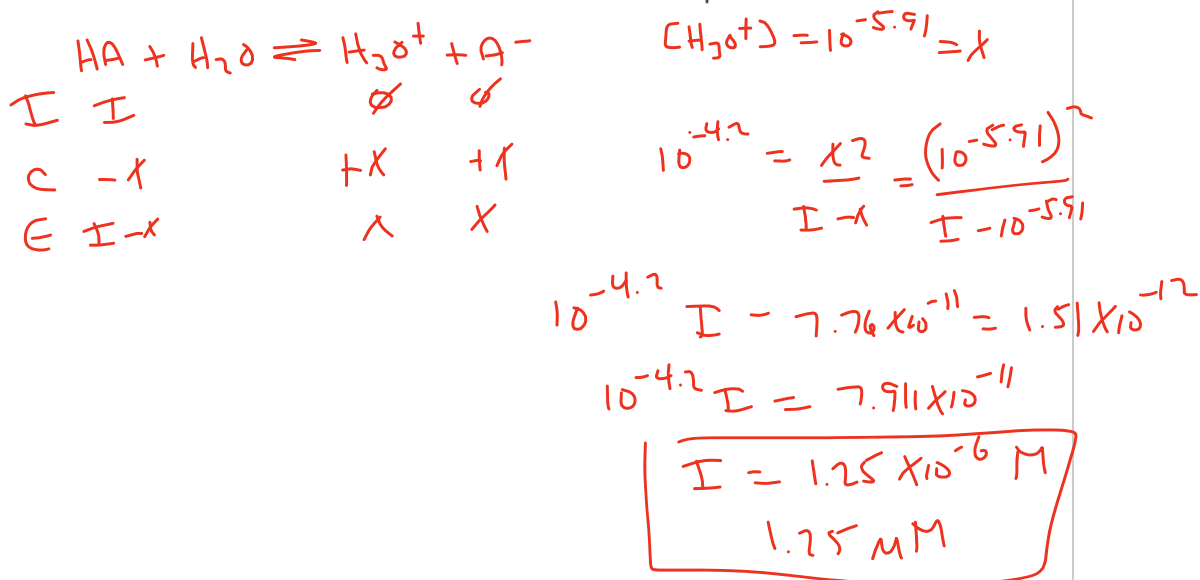 HA + H₂O ⇌ H₃O⁺ + A⁻
I I ∅ ∅
C -x +x +x
E I-x x x
[H₃O⁺] = 10^-5.91 = x
10^-4.2 = x2 / I-x = (10^-5.91)^2 / I-10^-5.91
10^-4.2 I - 7.76 x10^-11 = 1.51 x10^-12
10^-4.2 I = 7.911 x10^-11
I = 1.25 x10^-6 M
1.25 µM